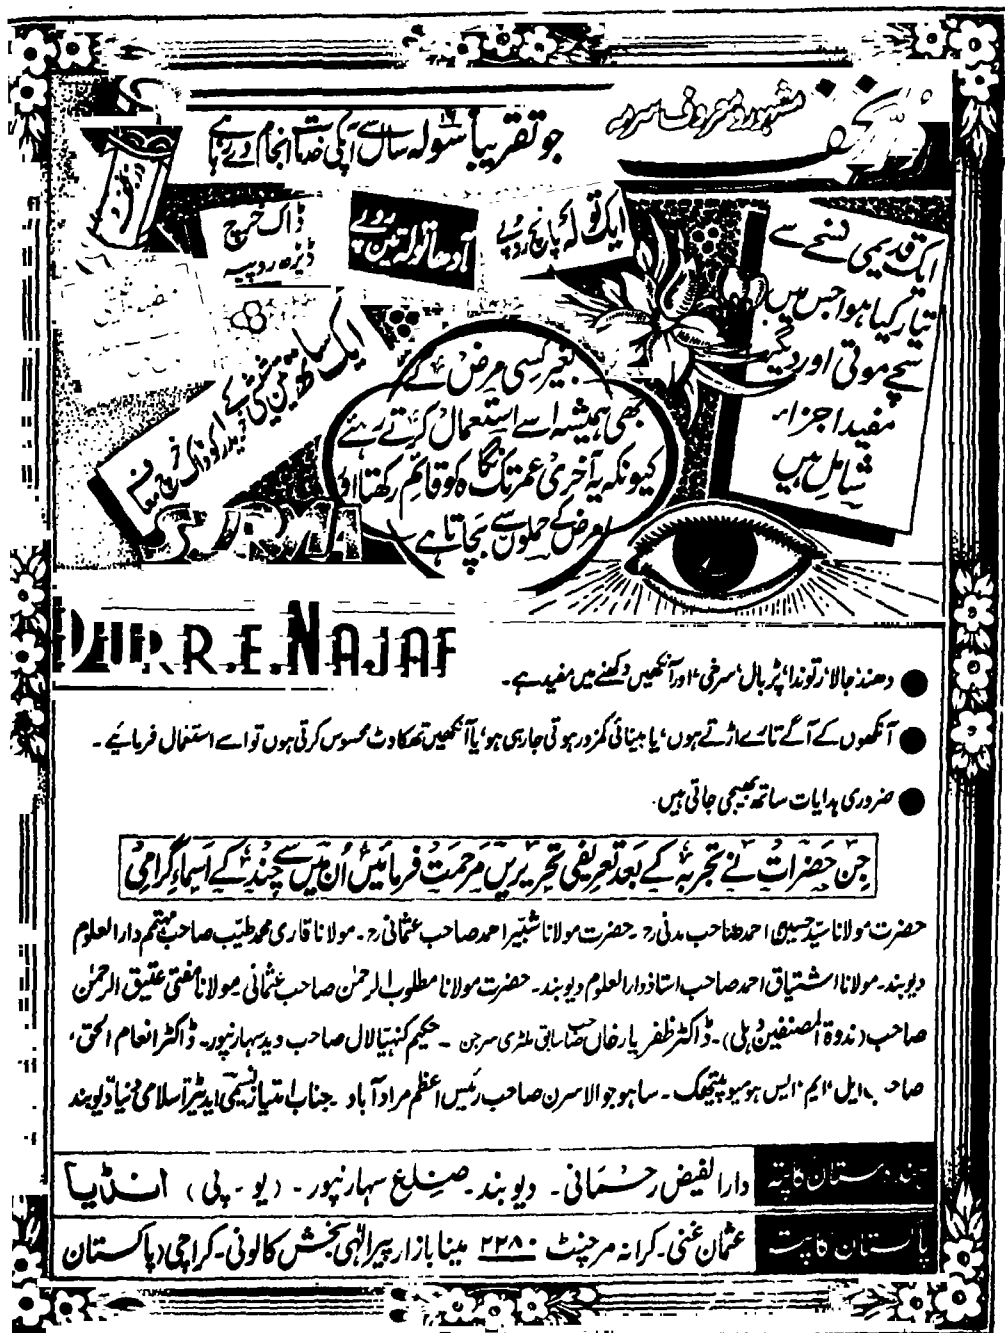 دُرِّ نجف
مشہور و معروف سرمہ
جو تقریباً سولہ ۱۶ سال سے آپکی خدمات انجام دے رہا ہے
ایک تولہ پانچ روپے
آدھا تولہ تین روپے
ڈاک خرچ
ڈیڑھ روپیہ
ایک قدیمی نسخے سے
تیار کیا ہوا جس میں
سچے موتی اور دیگر
مفید اجزاء
شامل ہیں
ایک ساتھ تین شیشی کے
خریدار کو ڈاک خرچ معاف
بغیر کسی مرض کے
بھی ہمیشہ اسے استعمال کرتے رہئے
کیونکہ یہ آخری عمر تک نگاہ کو قائم رکھتا اور
امرض کے حملوں سے بچاتا ہے
SURMA
DURR.E.NAJAF
دھند، جالا، رتوندا، پڑبال، سرخی، اور آنکھیں دکھنے میں مفید ہے۔
آنکھوں کے آگے تارے اڑتے ہوں، یا بینائی کمزور ہوتی جارہی ہو، یا آنکھیں تھکاوٹ محسوس کرتی ہوں تو اسے استعمال فرمائیے۔
ضروری ہدایات ساتھ بھیجی جاتی ہیں۔
جن حضرات نے تجربہ کے بعد تعریفی تحریریں مرحمت فرمائیں اُن میں سے چند کے اسماءِ گرامی
حضرت مولانا سید حسین احمد صاحب مدنی رح۔ حضرت مولانا شبیر احمد صاحب عثمانی رح۔ مولانا قاری محمد طیب صاحب مہتمم دارالعلوم
دیوبند۔ مولانا اشتیاق احمد صاحب استاذ دارالعلوم دیوبند۔ حضرت مولانا مطلوب الرحمٰن صاحب عثمانی مولانا مفتی عتیق الرحمٰن
صاحب (ندوۃ المصنفین دہلی)۔ ڈاکٹر ظفر یار خاں صاحب سابق ملٹری سرجن۔ حکیم کنہیا لال صاحب وید سہارنپور۔ ڈاکٹر انعام الحق
صاحب ایل، ایم، ایس ہومیوپیتھک۔ ساہو جوالا سرن صاحب رئیس اعظم مراد آباد۔ جناب امتیاز نسیمی ایڈیٹر اسلامی دنیا دیوبند
ہندوستان کا پتہ دارالفیض رحمانی۔ دیوبند۔ ضلع سہارنپور۔ (یو۔پی) انڈیا
پاکستان کا پتہ عثمان غنی۔ کرانہ مرچنٹ ۲۲۸۰ مینا بازار پیر الٰہی بخش کالونی۔ کراچی (پاکستان